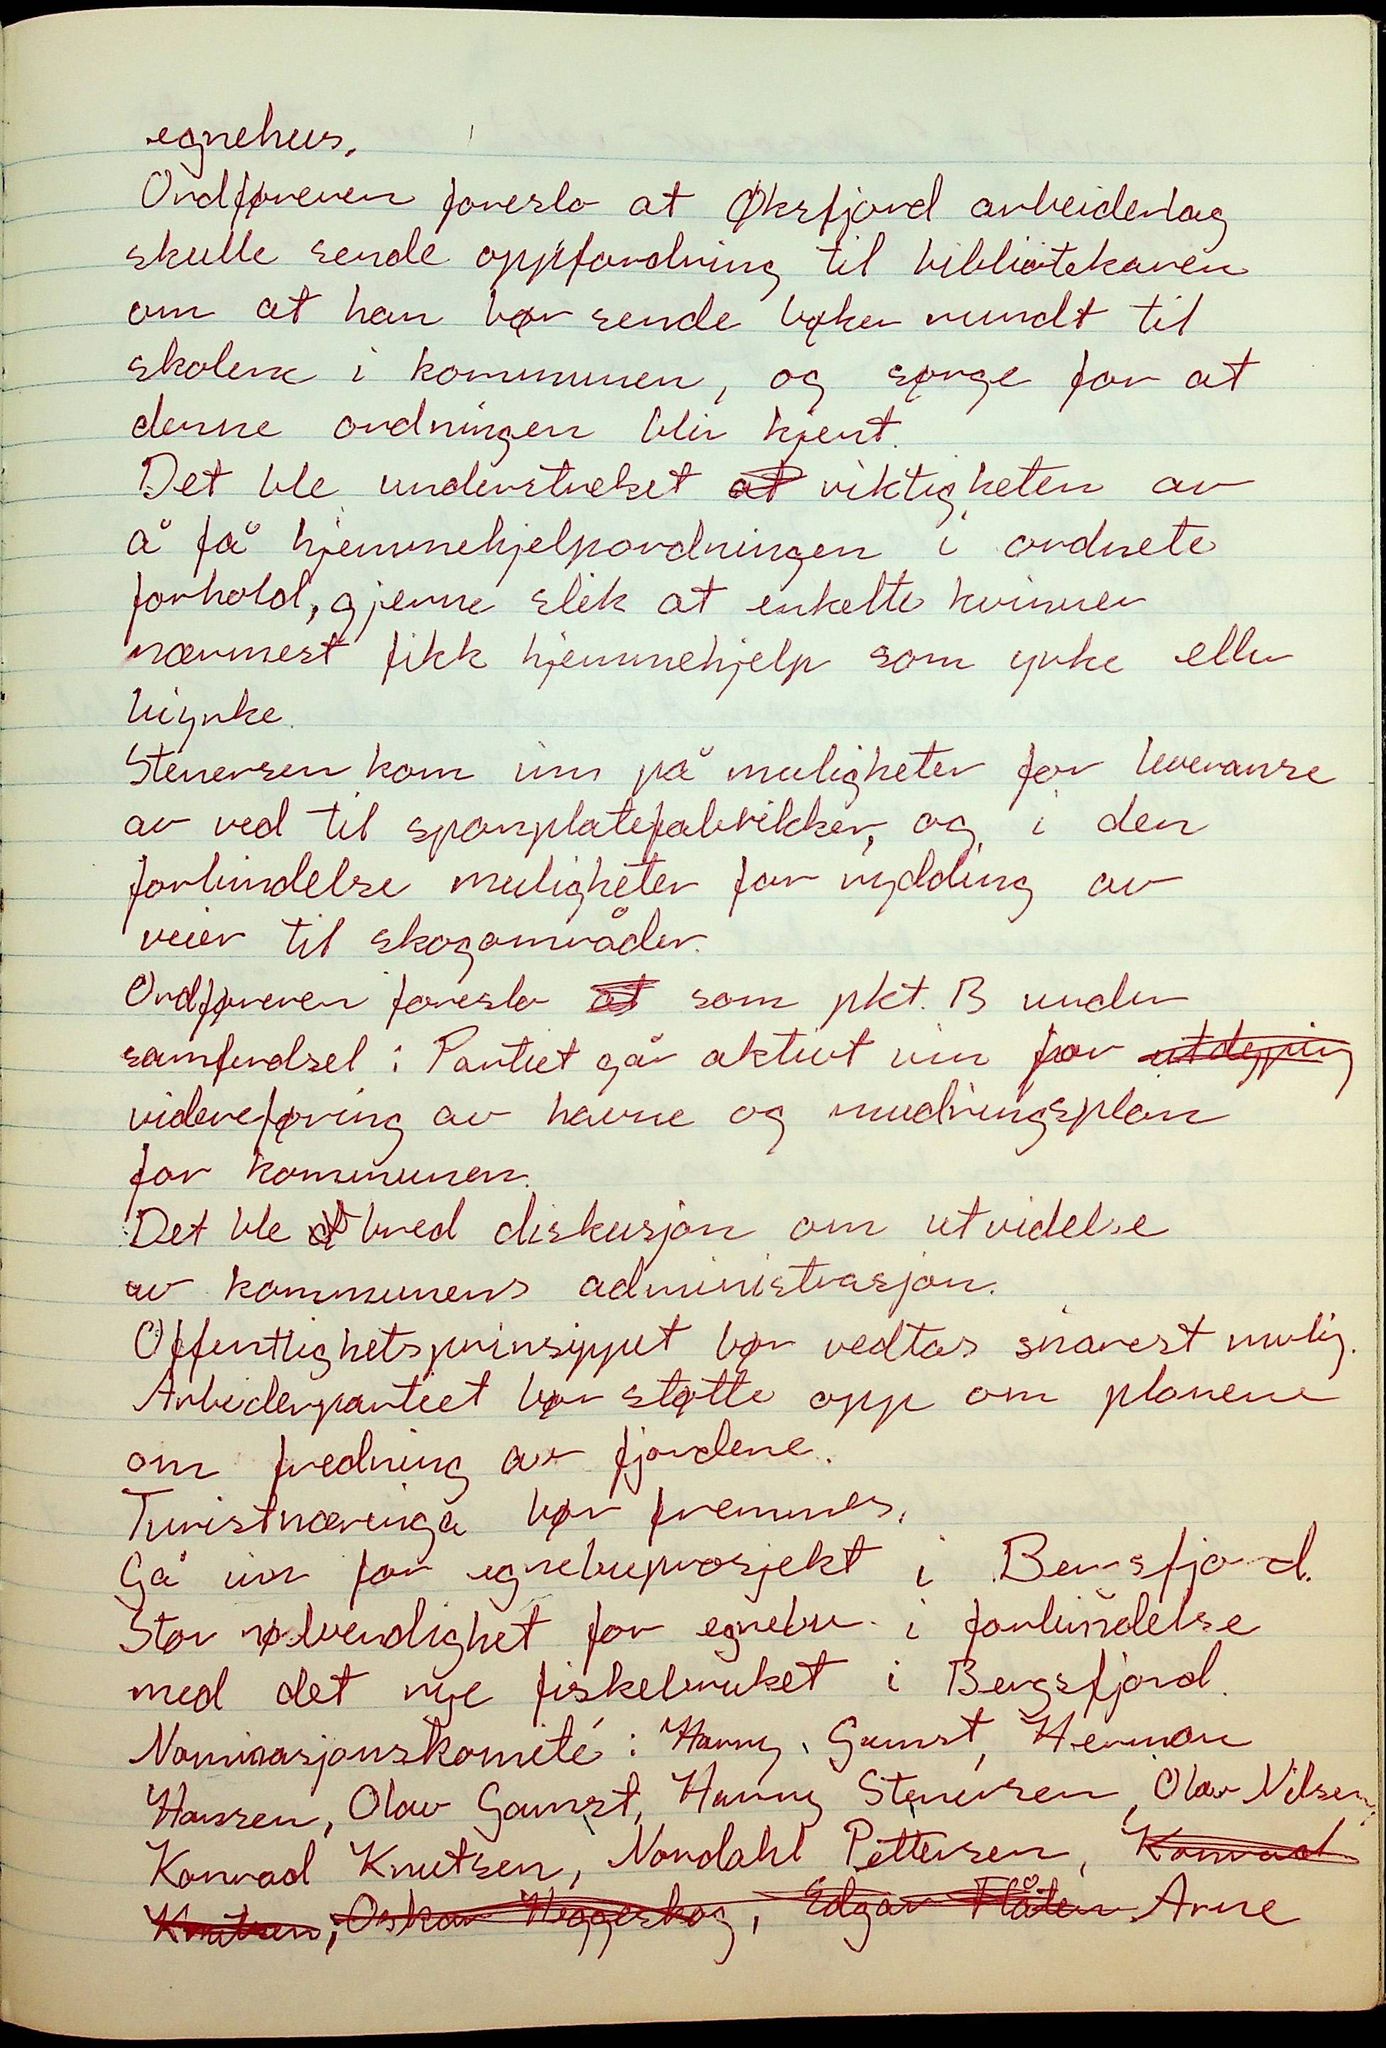 egnehus.
Ordføreren foreslo at Øksfjord arbeiderlag
skulle sende oppfordring til bibliotekaren
om at han bør sende bøker rundt til
skolene i kommunen, og sørge for at
denne ordningen blir kjent.
Det ble understreket at viktigheten av
å få hjemmehjelpordningen i ordnete
forhold, gjerne slik at enkelte kvinner
nærmest fikk hjemmehjelp som yrke eller
biyrke.
Stenersen kom inn på muligheter for leveranse
av ved til sponplatefabrikker, og i den
forbindelse muligheter for rydding av
veier til skogområder.
Ordføreren foreslo at som pkt. B under
samferdsel: Partiet går aktivt inn for utdyping
videreføring av havne og mudringsplan
for kommunen.
Det ble bred diskusjon om utvidelse
av kommunens administrasjon.
Offentlighetsprinsippet bør vedtas snarest mulig.
Arbeiderpartiet bør støtte opp om planene
om fredning av fjordene.
Turistnæringa bør fremmes.
Gå inn for egnebuprosjekt i Bersfjord.
Stor nødvendighet for egnebu i forbindelse
med det nye fiskebruket i Bergsfjord.
Nominasjonskomité: Harry Gamst, Herman
Hansen, Olav Gamst, Harry Stenersen, Olav Nilsen,
Konrad Knutsen, Nordahl Pettersen, Konrad
Knutsen, Oskar Heggeskog, Edgar Flåten Arne